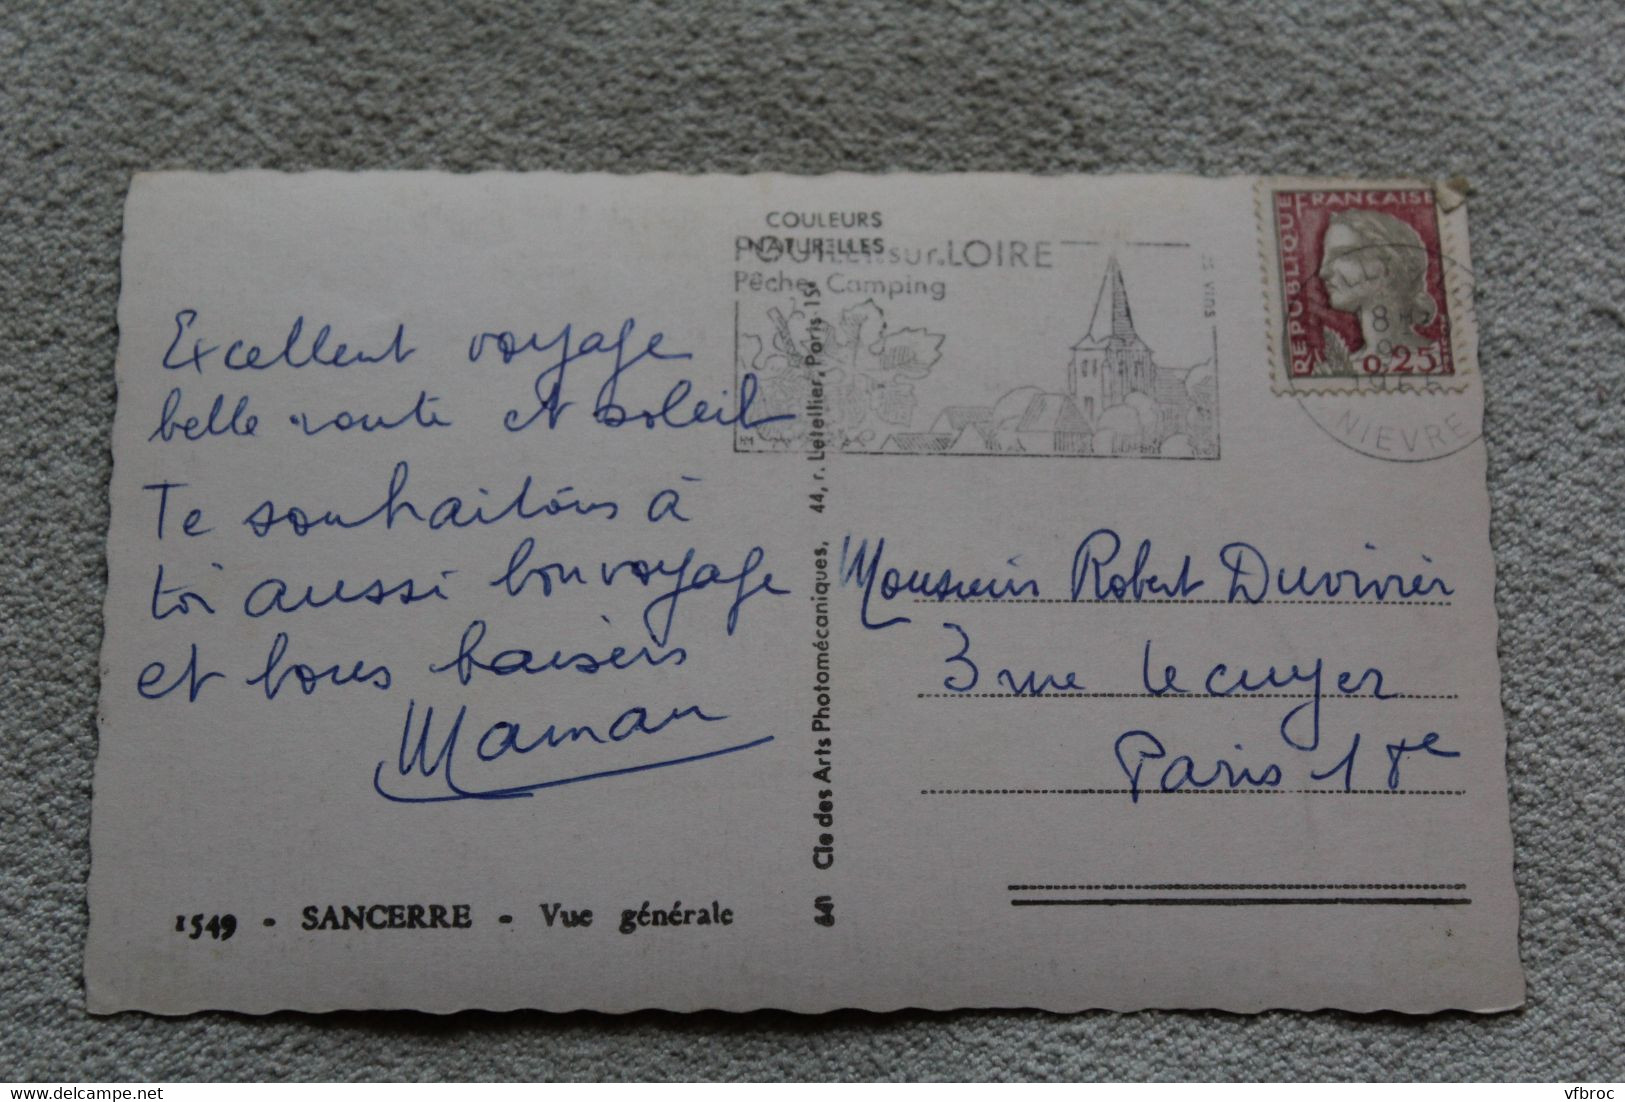 COULEURS
NATURELLES
POUILLY.sur.LOIRE
Pêche, Camping
VINS
REPUBLIQUE FRANÇAISE
0,25
18 H
NIEVRE
Excellent voyage
belle route et soleil
Te souhaitons à
toi aussi bon voyage
et bons baisers
Maman
Monsieur Robert Duvivier
3 rue Lecuyer
Paris 18e
1549 - SANCERRE - Vue générale
Cie des Arts Photomécaniques, 44, r. Letellier, Paris 15e
vfbroc
delcampe.net